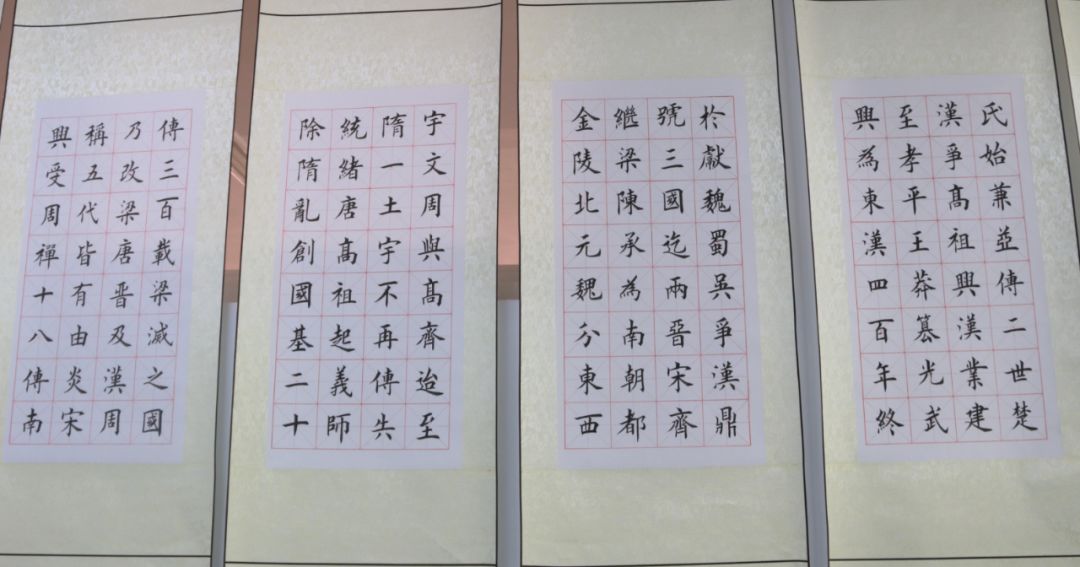 氏始兼並傳二世楚
漢爭高祖興漢業建
至孝平王莽篡光武
興為東漢四百年終
於獻魏蜀吳爭漢鼎
號三國迄兩晉宋齊
繼梁陳承為南朝都
金陵北元魏分東西
宇文周與高齊迨至
隋一土宇不再傳失
統緒唐高祖起義師
除隋亂創國基二十
傳三百載梁滅之國
乃改梁唐晉及漢周
稱五代皆有由炎宋
興受周禪十八傳南